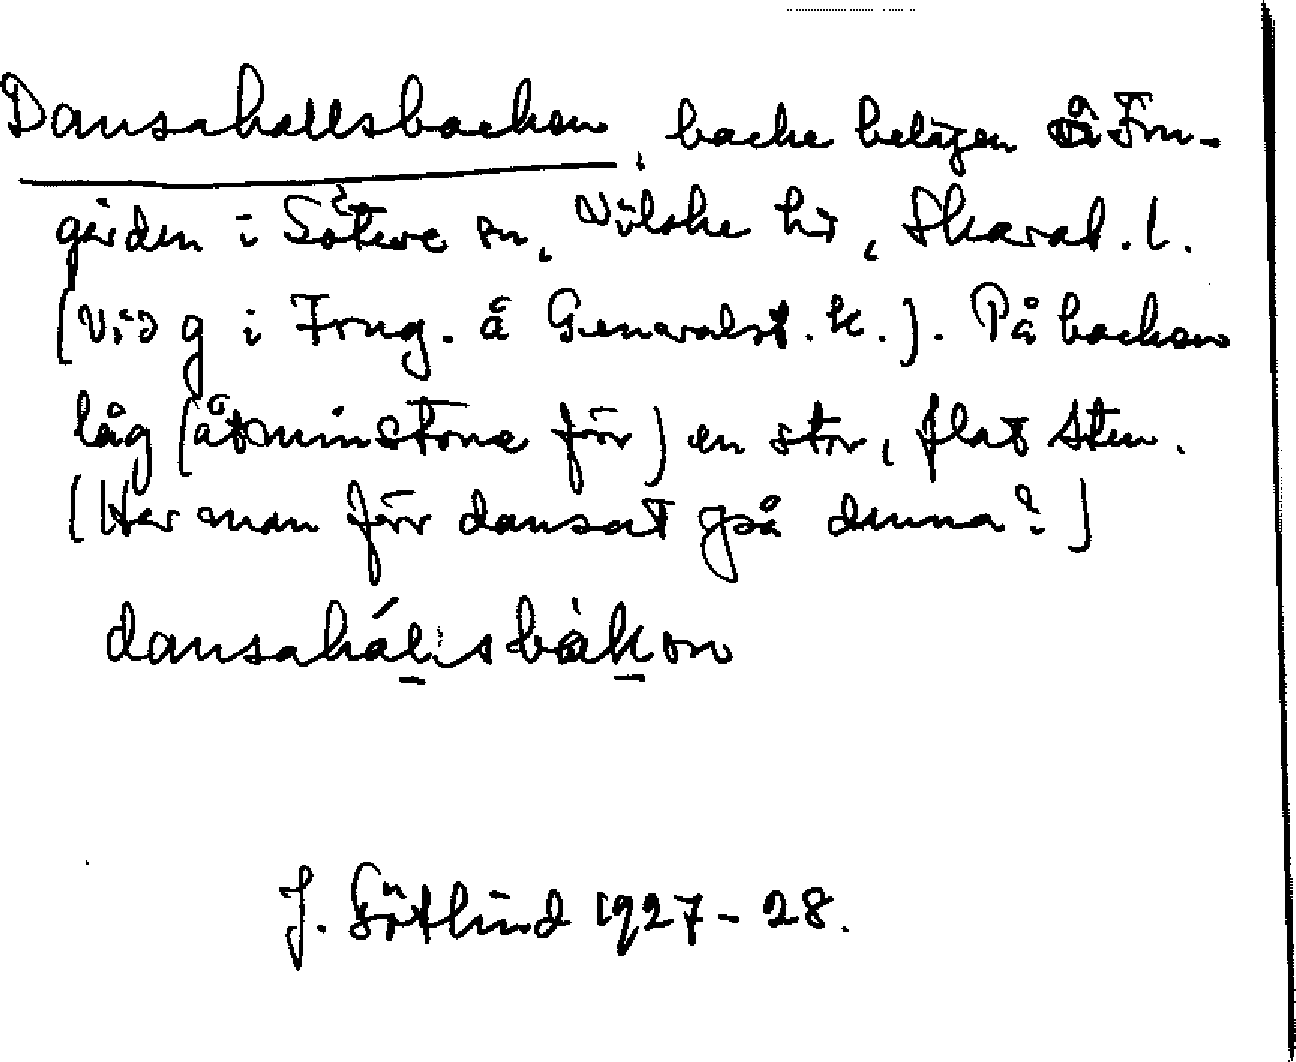 Dansahallsbacken, backe belägen å Fru-
gården i Sätene sn, Vilske hd, Skarab. l.
(vid g i Frug. å Generalst. k.). På backen
låg (åtminstone förr) en stor, flat sten.
(Har man förr dansat på denna?)
dansahálsbàkən
J. Götlind 1927-28.